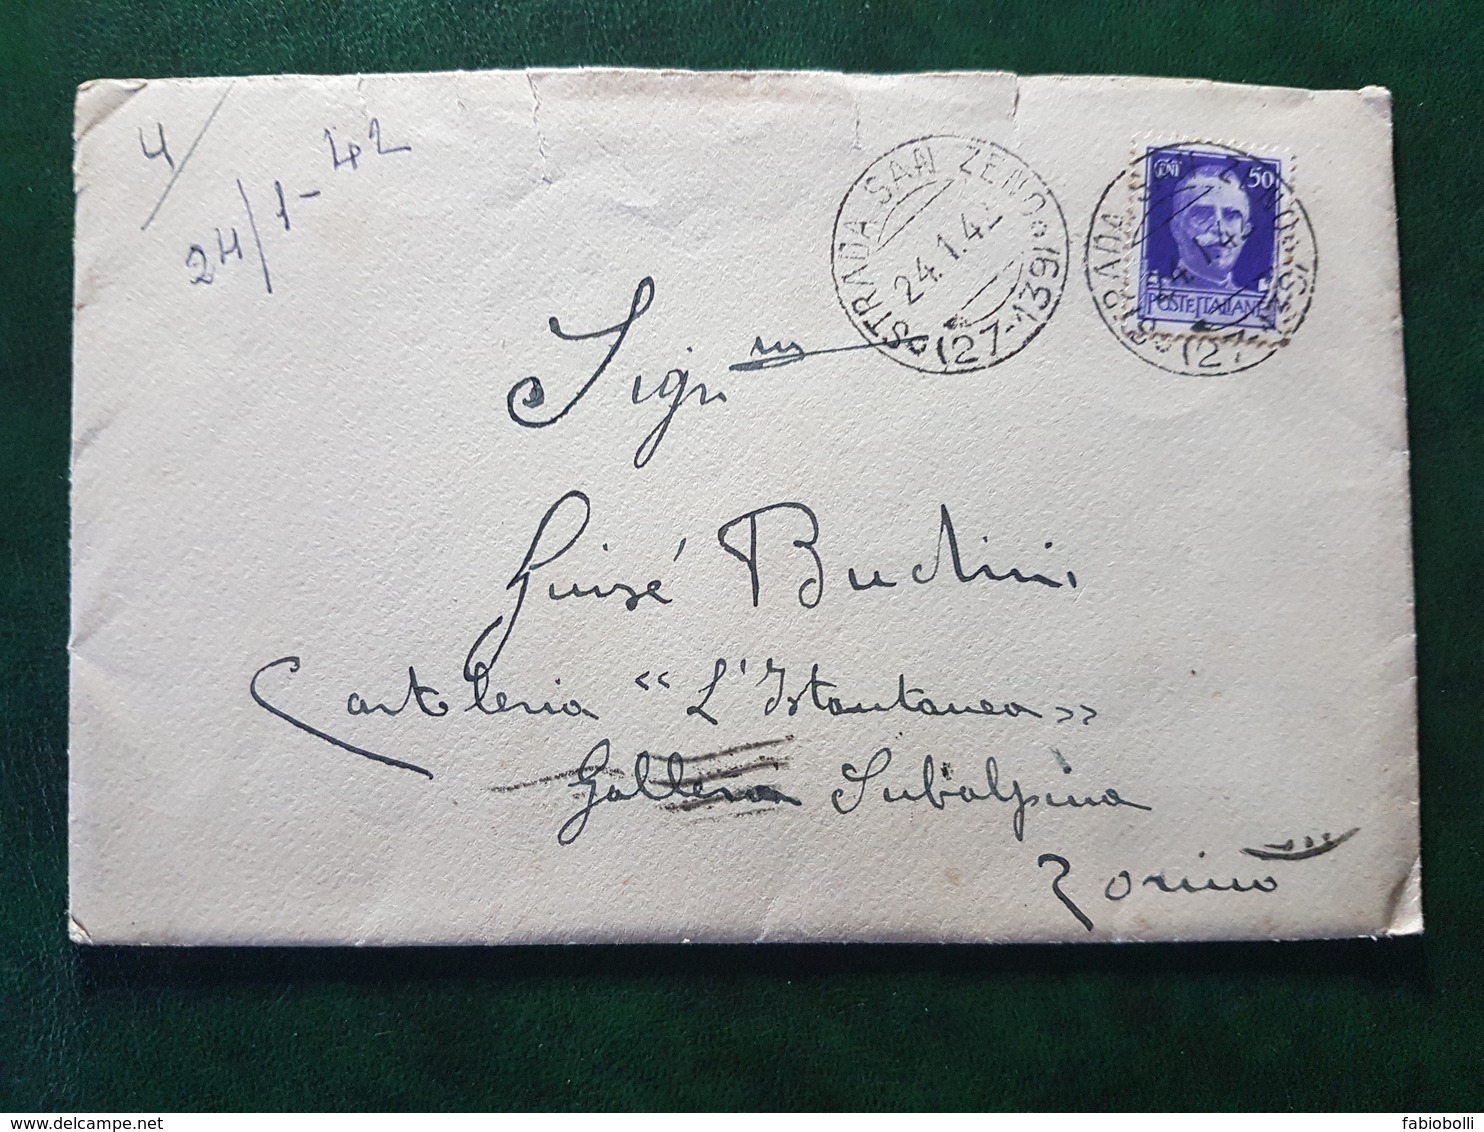 4/
24/1-42
STRADA SAN ZENO (27-139)
24.1.42
CENT 50
POSTE ITALIANE
Sig.na
Giusé Budini
Cartoleria "L'Istantanea"
Galleria Subalpina
Torino
delcampe.net
fabiobolli